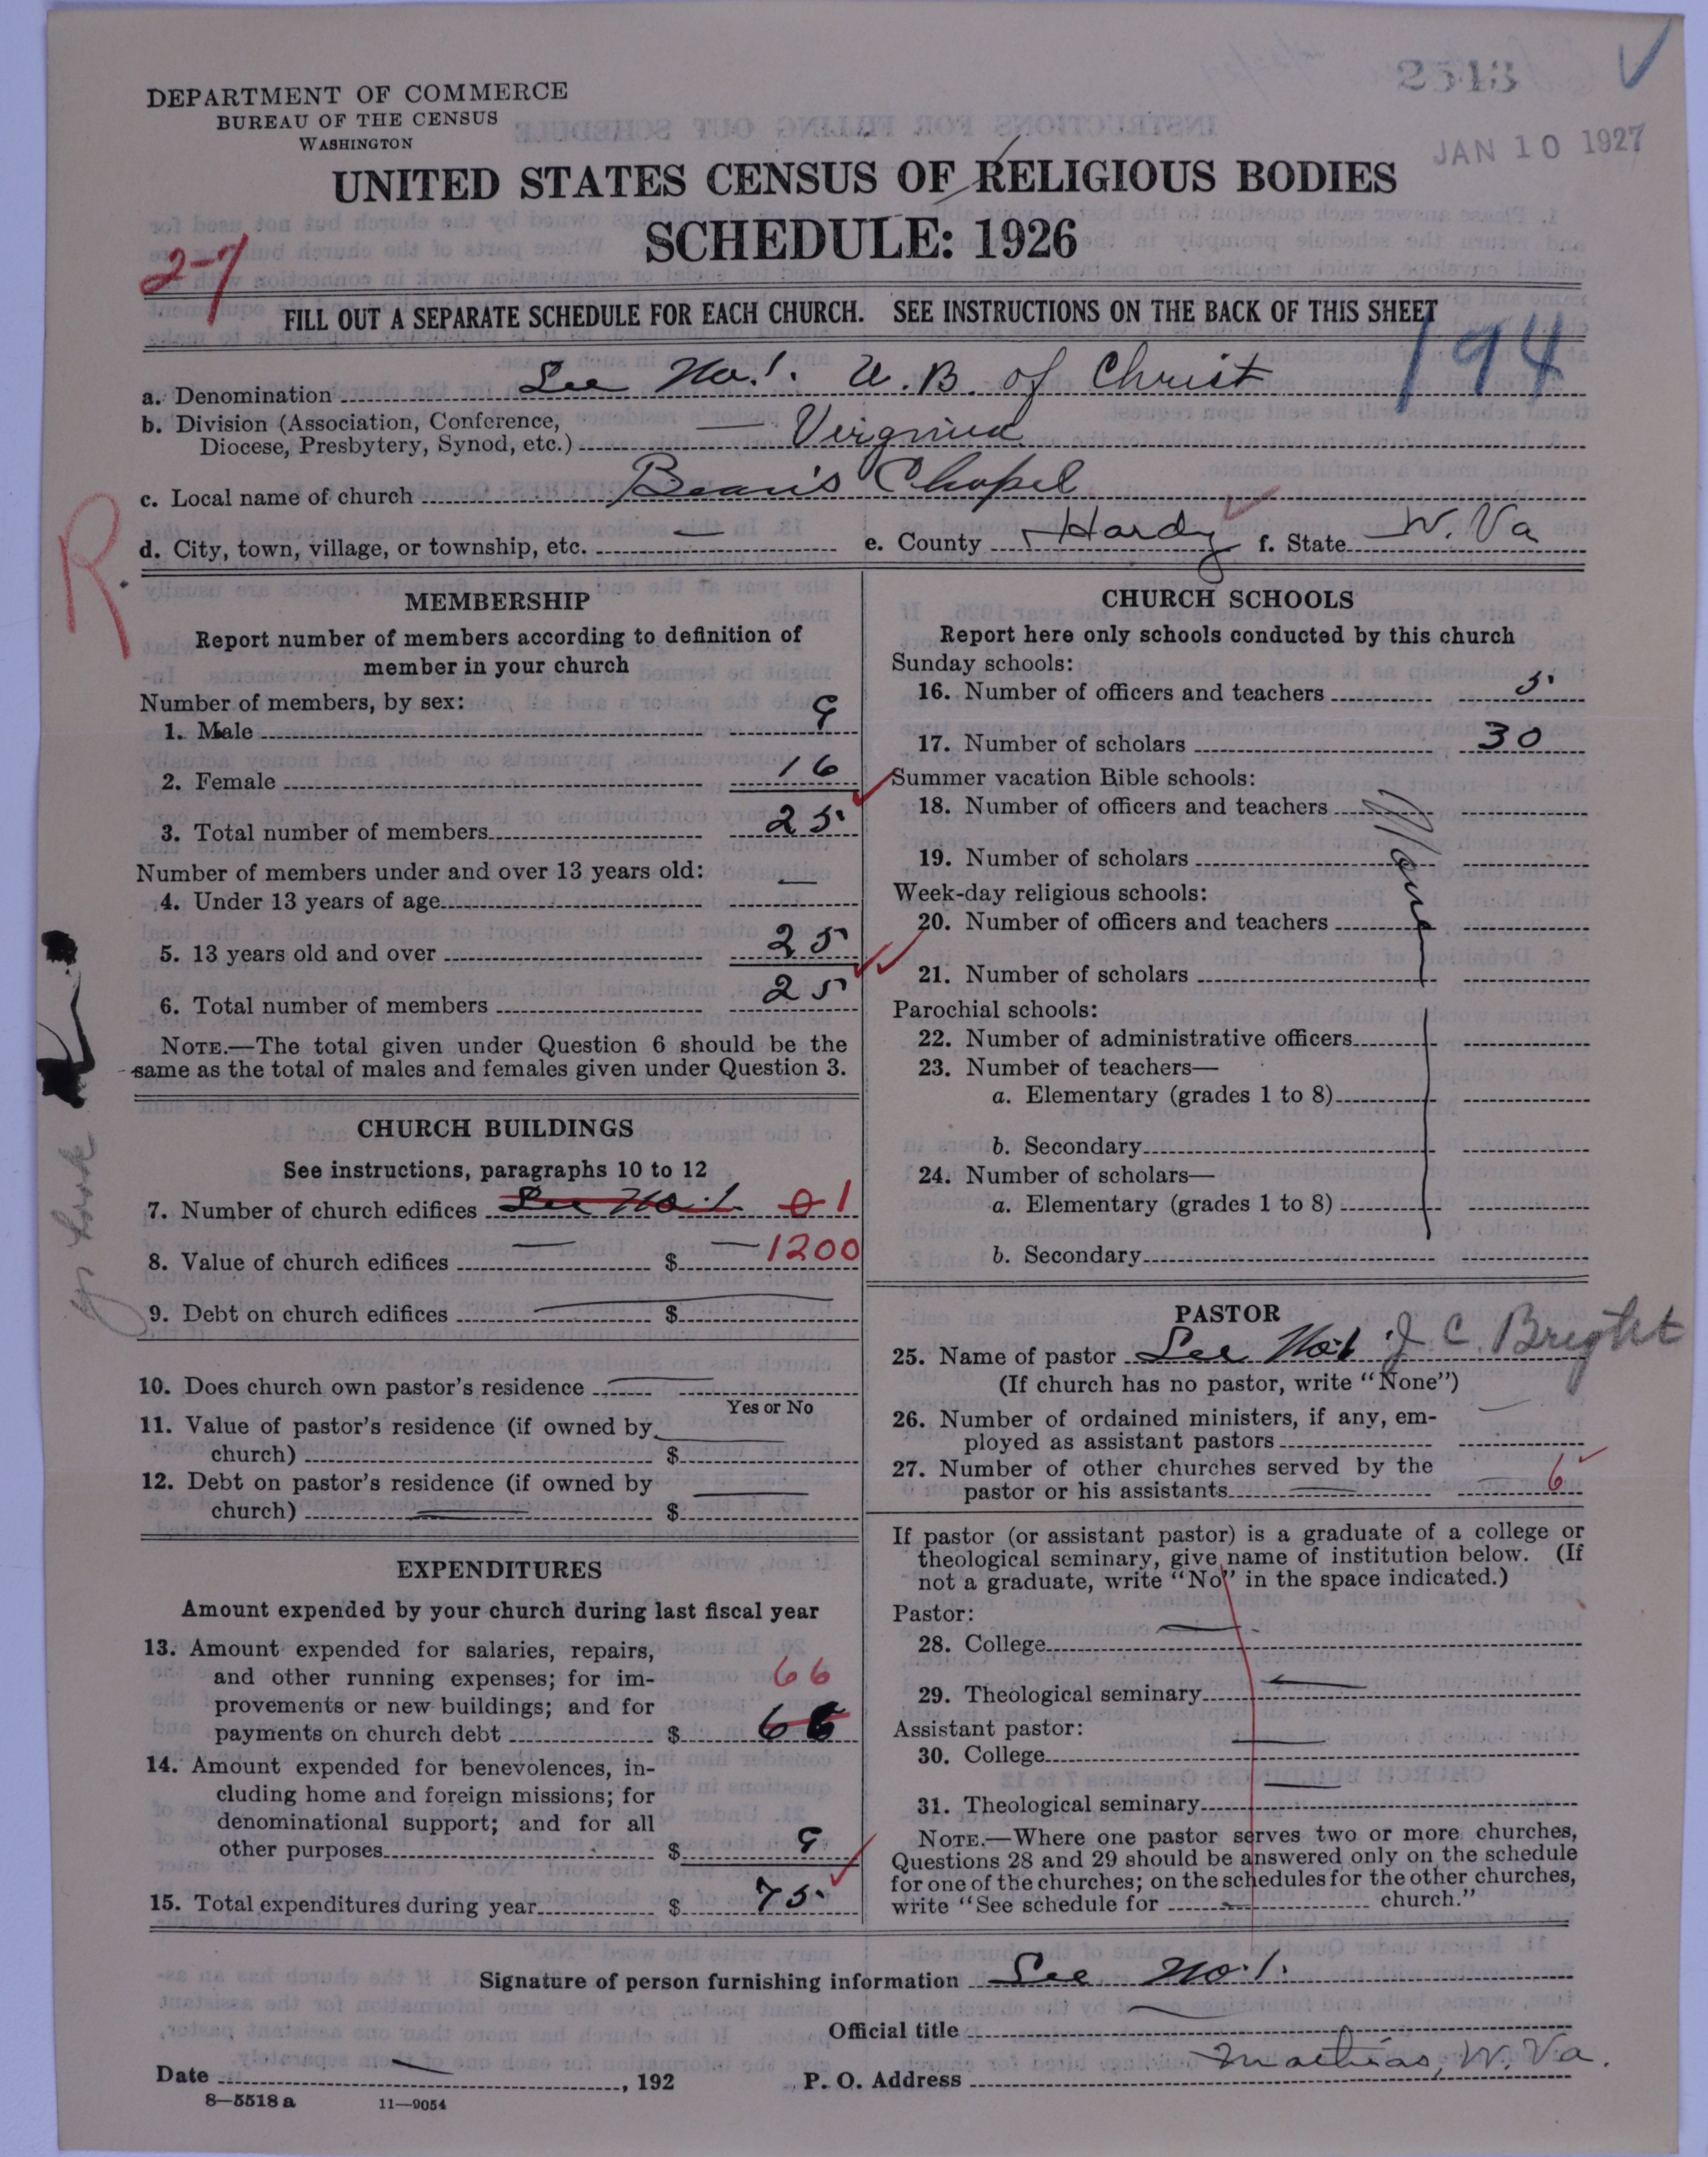 2513
JAN 10 1927
DEPARTMENT OF COMMERCE
BUREAU OF THE CENSUS
WASHINGTON
UNITED STATES CENSUS OF RELIGIOUS BODIES
SCHEDULE: 1926
2-7
FILL OUT A SEPARATE SCHEDULE FOR EACH CHURCH. SEE INSTRUCTIONS ON THE BACK OF THIS SHEET
194
a. Denomination See No. 1. U.B. of Christ
b. Division (Association, Conference,
Diocese, Presbytery, Synod, etc.) — Virginia
c. Local name of church Bean's Chapel
d. City, town, village, or township, etc. — e. County Hardy f. State W. Va
R.
MEMBERSHIP
Report number of members according to definition of
member in your church
Number of members, by sex:
1. Male 9
2. Female 16
3. Total number of members 25
Number of members under and over 13 years old:
4. Under 13 years of age —
5. 13 years old and over 25
6. Total number of members 25
NOTE.—The total given under Question 6 should be the
same as the total of males and females given under Question 3.
CHURCH BUILDINGS
See instructions, paragraphs 10 to 12
7. Number of church edifices See No. 1. 0 1
8. Value of church edifices — $ — 1200
9. Debt on church edifices — $
10. Does church own pastor's residence —
Yes or No
11. Value of pastor's residence (if owned by
church) $ —
12. Debt on pastor's residence (if owned by
church) — $ —
EXPENDITURES
Amount expended by your church during last fiscal year
13. Amount expended for salaries, repairs,
and other running expenses; for im-
66
provements or new buildings; and for
payments on church debt $ 66
14. Amount expended for benevolences, in-
cluding home and foreign missions; for
denominational support; and for all
other purposes $ 9
15. Total expenditures during year $ 75
CHURCH SCHOOLS
Report here only schools conducted by this church
Sunday schools:
16. Number of officers and teachers 5
17. Number of scholars 30
Summer vacation Bible schools:
18. Number of officers and teachers
None
19. Number of scholars
Week-day religious schools:
20. Number of officers and teachers
21. Number of scholars
Parochial schools:
22. Number of administrative officers
23. Number of teachers—
a. Elementary (grades 1 to 8)
b. Secondary
24. Number of scholars—
a. Elementary (grades 1 to 8)
b. Secondary
PASTOR
25. Name of pastor See No. 1 J C. Bright
(If church has no pastor, write "None")
26. Number of ordained ministers, if any, em-
ployed as assistant pastors —
27. Number of other churches served by the
pastor or his assistants — 6
If pastor (or assistant pastor) is a graduate of a college or
theological seminary, give name of institution below. (If
not a graduate, write "No" in the space indicated.)
Pastor:
28. College —
29. Theological seminary —
Assistant pastor:
30. College —
31. Theological seminary —
NOTE.—Where one pastor serves two or more churches,
Questions 28 and 29 should be answered only on the schedule
for one of the churches; on the schedules for the other churches,
write "See schedule for — church."
Signature of person furnishing information See No. 1.
Official title —
Date —, 192 P. O. Address Mathias, W. Va.
8—5518 a 11—9054